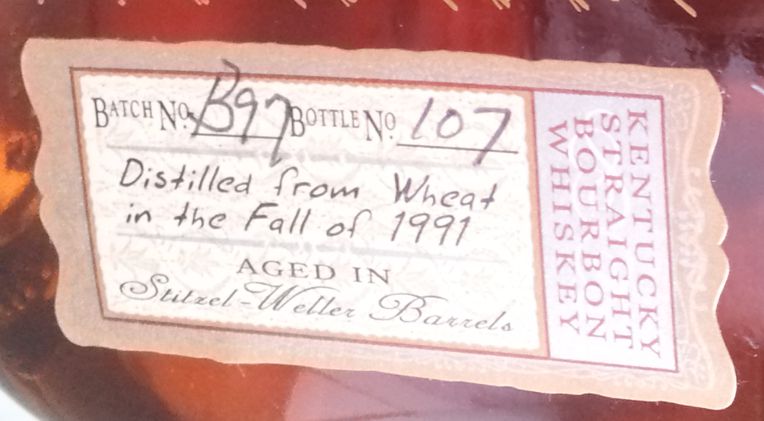 BATCH NO. B97 BOTTLE NO. 107
Distilled from Wheat
in the Fall of 1991
AGED IN
Stitzel-Weller Barrels
KENTUCKY
STRAIGHT
BOURBON
WHISKEY